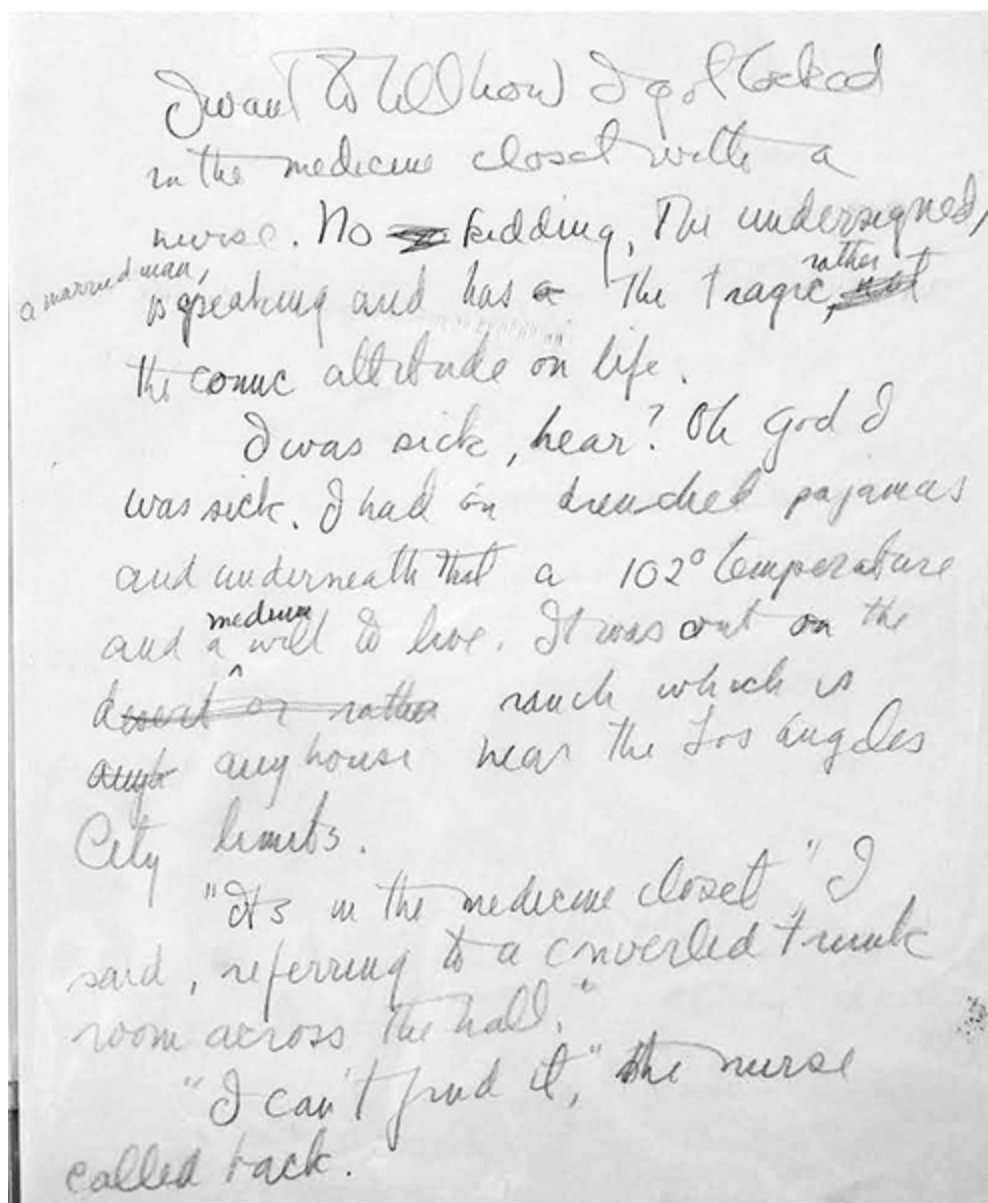 I want to tell how I got locked
in the medicine closet with a
nurse. No kidding, The undersigned,
a married man,
rather
is speaking and has a the tragic,
the comic attitude on life.
I was sick, hear? Oh god I
was sick. I had on drenched pajamas
and underneath that a 102° temperature
medium
and a will to live. It was out on the
desert or rather ranch which is
any house near the Los Angeles
City limits.
"Its in the medicine closet" I
said, referring to a converted trunk
room across the hall."
"I can't find it," the nurse
called back.